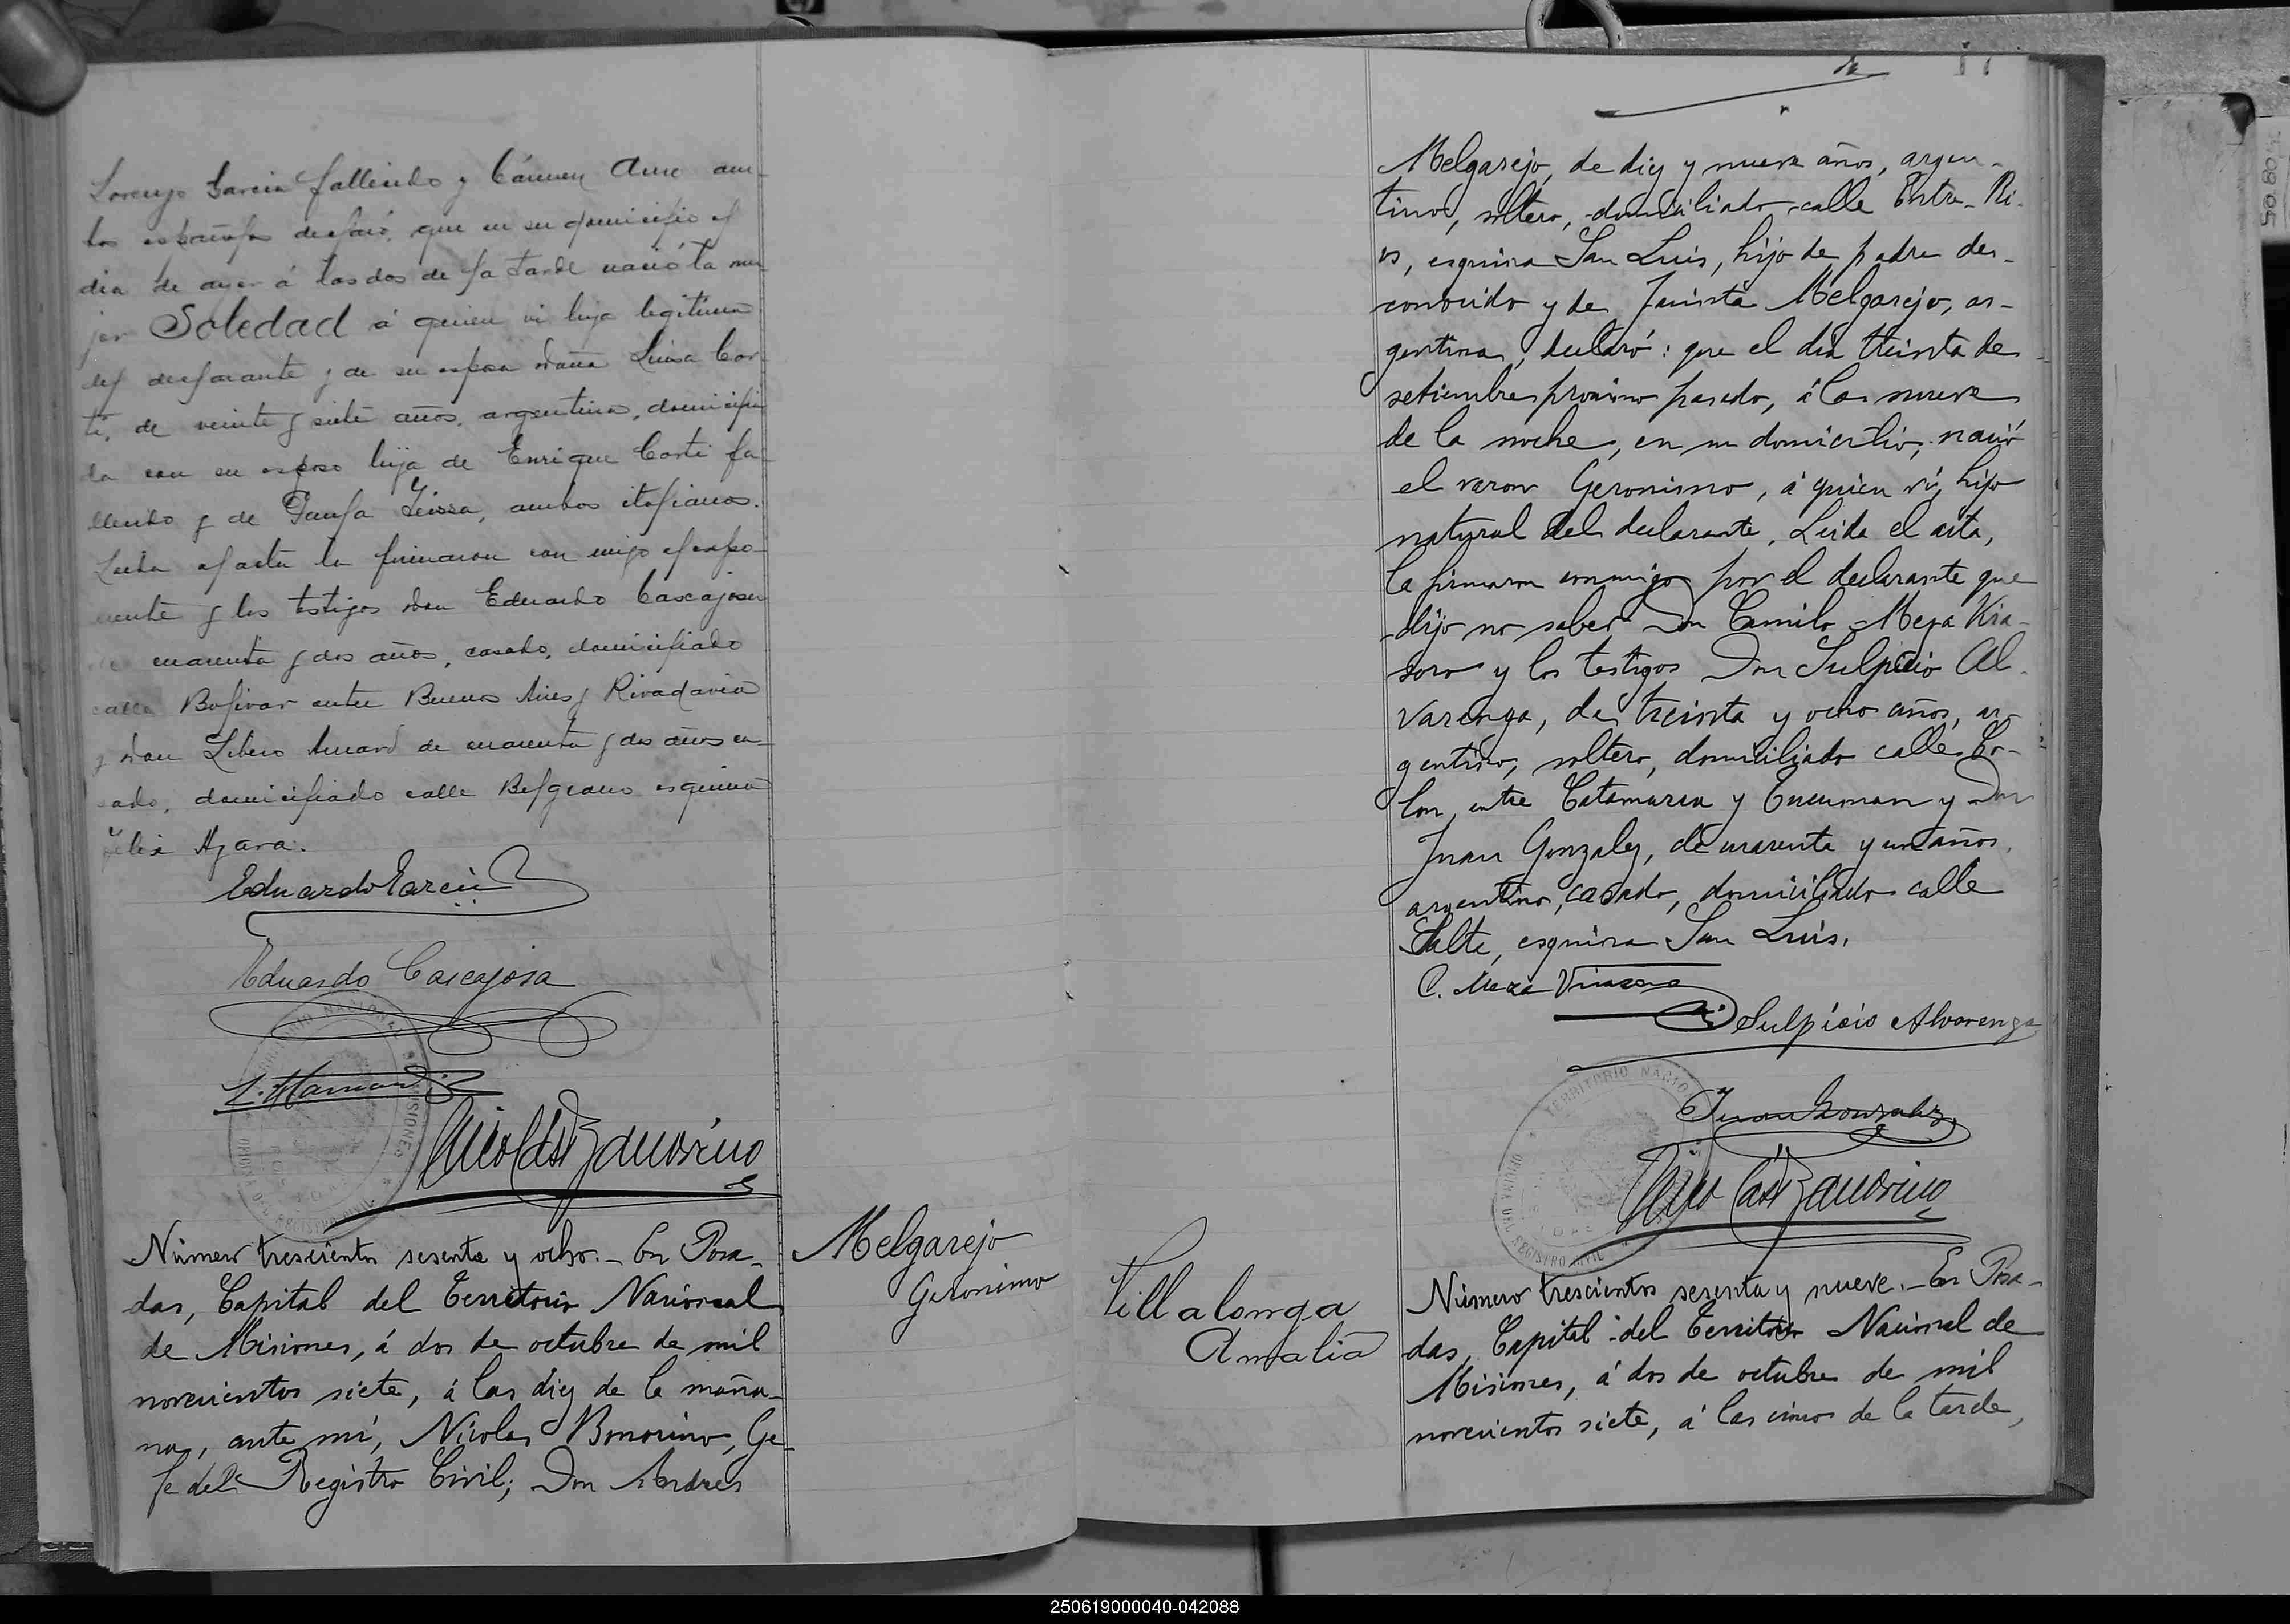 Lorenzo Garcia fallecido y Cármen Aure am-
bos españoles declaró: que en su domicilio el
dia de ayer á las dos de la tarde nació la mu-
jer Soledad á quien vi hija legitima
del declarante y de su esposa doña Luisa Cor-
ti, de veinte y siete años, argentina, domicilia
da con su esposo hija de Enrique Corti fa-
llecido y de Paula Leissa, ambos italianos.
Leida el acta la firmaron con migo el expo-
nente y los testigos don Eduardo Cascajosa
de cuarenta y dos años, casado, domiciliado
calle Bolivar entre Buenos Aires y Rivadavia
y don Libero de cuarenta y dos años ca-
sado, domiciliado calle Belgrano esquina
Felix Azara.
Eduardo Garcia
Eduardo Cascajosa
TERRITORIO NACIONAL MISIONES
OFICINA DEL REGISTRO CIVIL
POSADAS
Nicolas Bonorino
Número trescientos sesenta y ocho.- En Posa-
das, Capital del Territorio Nacional
de Misiones, á dos de octubre de mil
novecientos siete, á las diez de la maña-
na, ante mí, Nicolas Bonorino, Ge-
fe del Registro Civil; Don Andres
Melgarejo
Geronimo
Melgarejo, de diez y nueve años, argen-
tino, soltero, domiciliado calle Entre-Ri-
os, esquina San Luis, hijo de padre des-
conocido y de Jacinta Melgarejo, ar-
gentina, declaró: que el dia treinta de
setiembre proximo pasado, á las nueve
de la noche, en su domicilio, nació
el varon Geronimo, á quien ví, hijo
natural del declarante. Leida el acta,
la firmaron conmigo por el declarante que
dijo no saber Don Camilo Meza Vira-
soro y los testigos Don Sulpicio Al-
varenga, de treinta y ocho años, ar-
gentino, soltero, domiciliado calle Co-
lon, entre Catamarca y Tucuman y Don
Juan Gonzalez, de cuarenta y un años,
argentino, casado, domiciliado calle
Salta, esquina San Luis.
C. Meza Virasoro
Sulpicio Alvarenga
TERRITORIO NACIO
OFICINA DEL REGISTRO CIVIL
Juan Gonzalez
Nicolas Bonorino
Villalonga
Amalia
Número trescientos sesenta y nueve.- En Posa-
das, Capital del Territorio Nacional de
Misiones, á dos de octubre de mil
novecientos siete, á las cinco de la tarde,
250619000040-042088